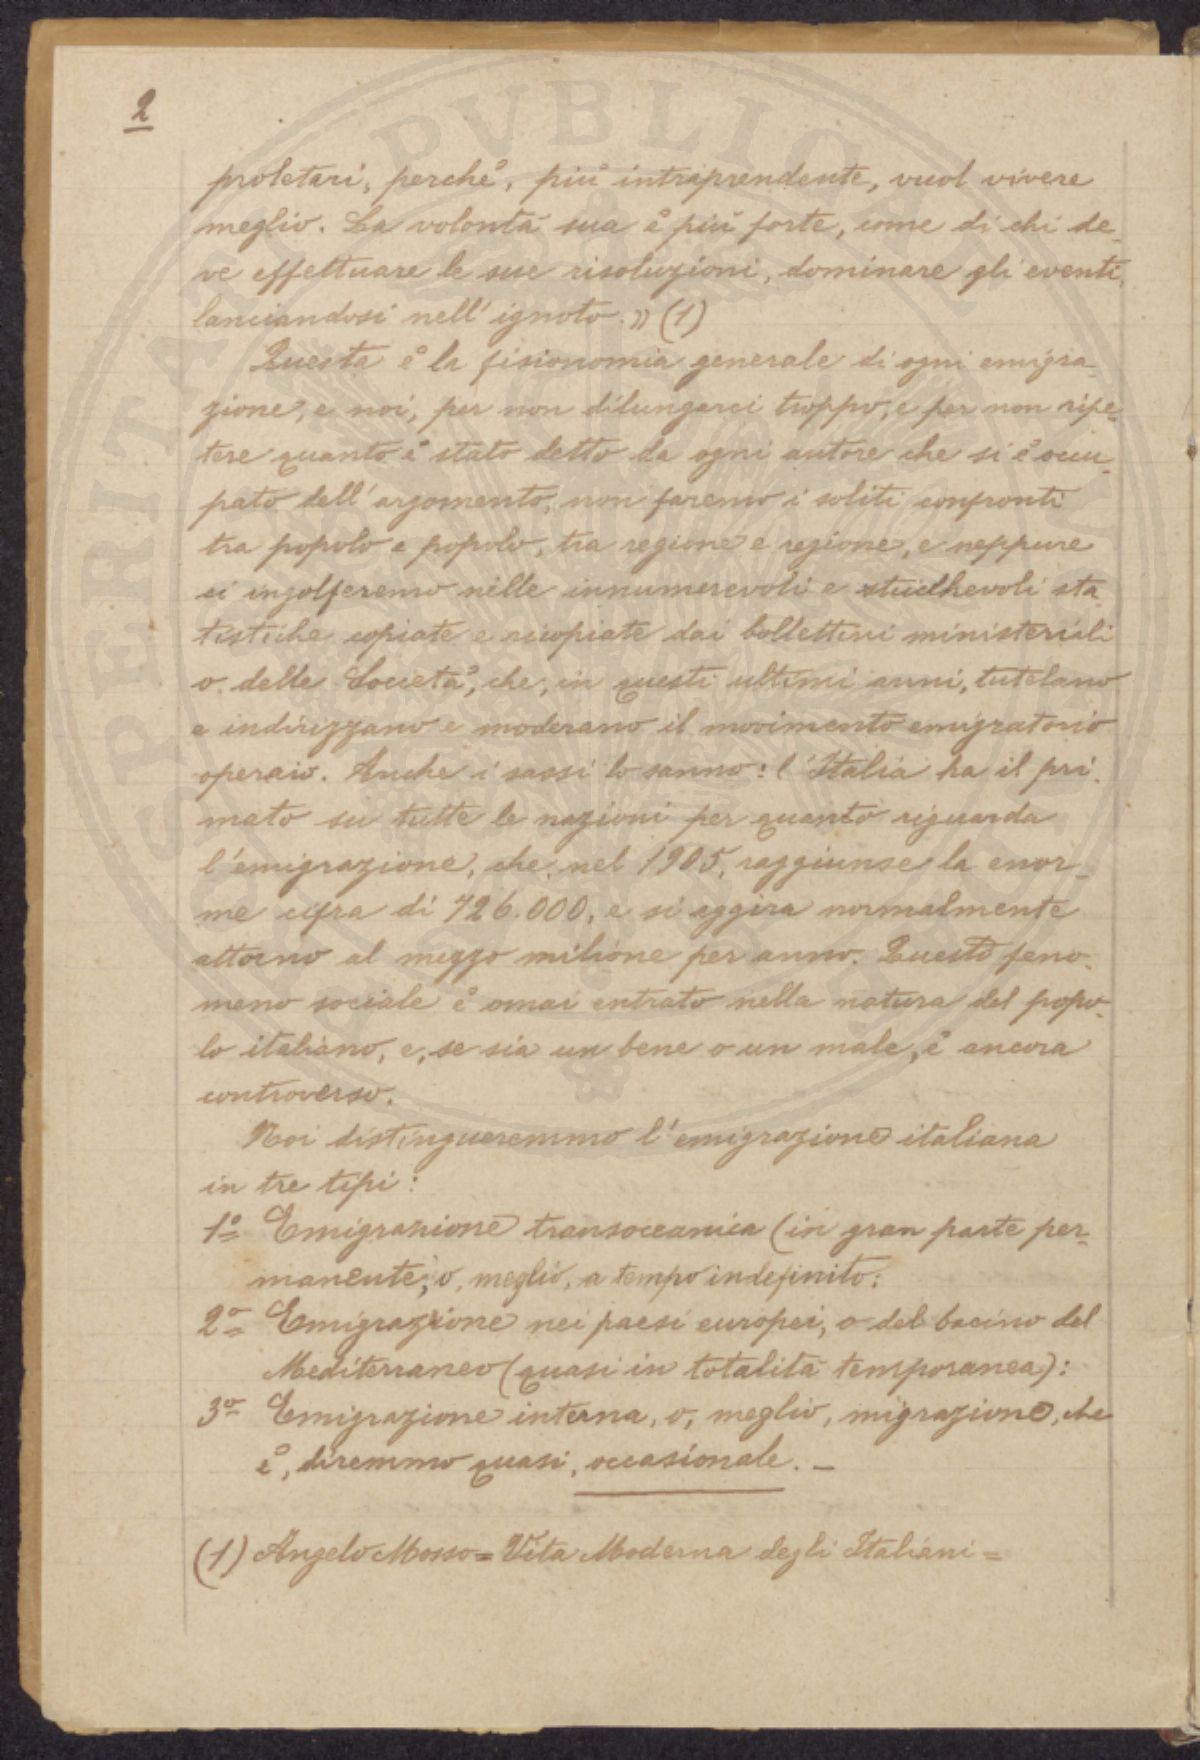 2
proletari, perchè, più intraprendente, vuol vivere
meglio. La volontà sua è più forte, come di chi de-
ve effettuare le sue risoluzioni, dominare gli eventi,
lanciandosi nell'ignoto.» (1)
Questa è la fisionomia generale di ogni emigra-
zione, e noi, per non dilungarci troppo, e per non ripe-
tere quanto è stato detto da ogni autore che si è occu-
pato dell'argomento, non faremo i soliti confronti
tra popolo e popolo, tra regione e regione, e neppure
ci ingolferemo nelle innumerevoli e stucchevoli sta-
tistiche copiate e ricopiate dai bollettini ministeriali
o delle Società, che, in questi ultimi anni, tutelano
e indirizzano e moderano il movimento emigratorio
operaio. Anche i sassi lo sanno: l'Italia ha il pri-
mato su tutte le nazioni per quanto riguarda
l'emigrazione, che, nel 1905, raggiunse la enor-
me cifra di 726.000, e si aggira normalmente
attorno al mezzo milione per anno. Questo feno-
meno sociale è omai entrato nella natura del popo-
lo italiano, e, se sia un bene o un male, è ancora
controverso.
Noi distingueremmo l'emigrazione italiana
in tre tipi:
1º Emigrazione transoceanica (in gran parte per-
manente, o, meglio, a tempo indefinito:
2º Emigrazione nei paesi europei, o del bacino del
Mediterraneo (quasi in totalità temporanea):
3º Emigrazione interna, o, meglio, migrazione, che
è, diremmo quasi, occasionale. –
(1) Angelo Mosso = Vita Moderna degli Italiani =
PROSPERITATI PVBLICAE